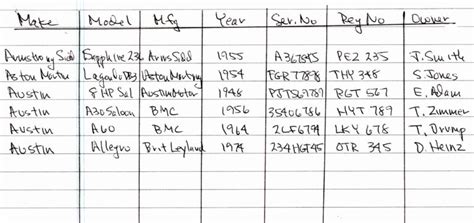 Make Model Mfg Year Ser.No Reg No Owner
Armstrong Sidd Sapphire 236 Arm Sidd 1955 A367845 PE2 235 J. Smith
Aston Martin Lagonda 1954 THY 348 S Jones
Austin 8HP Sal Austin Motor 1948 RGT 567 E. Adam
Austin A30 Saloon BMC 1956 35406786 HYT 789 T. Zimmer
Austin A60 BMC 1964 2LF6794 LKY 678 T. Drump
Austin Allegro Brit Leyland 1974 234HGT45 OTR 345 D. Heinz